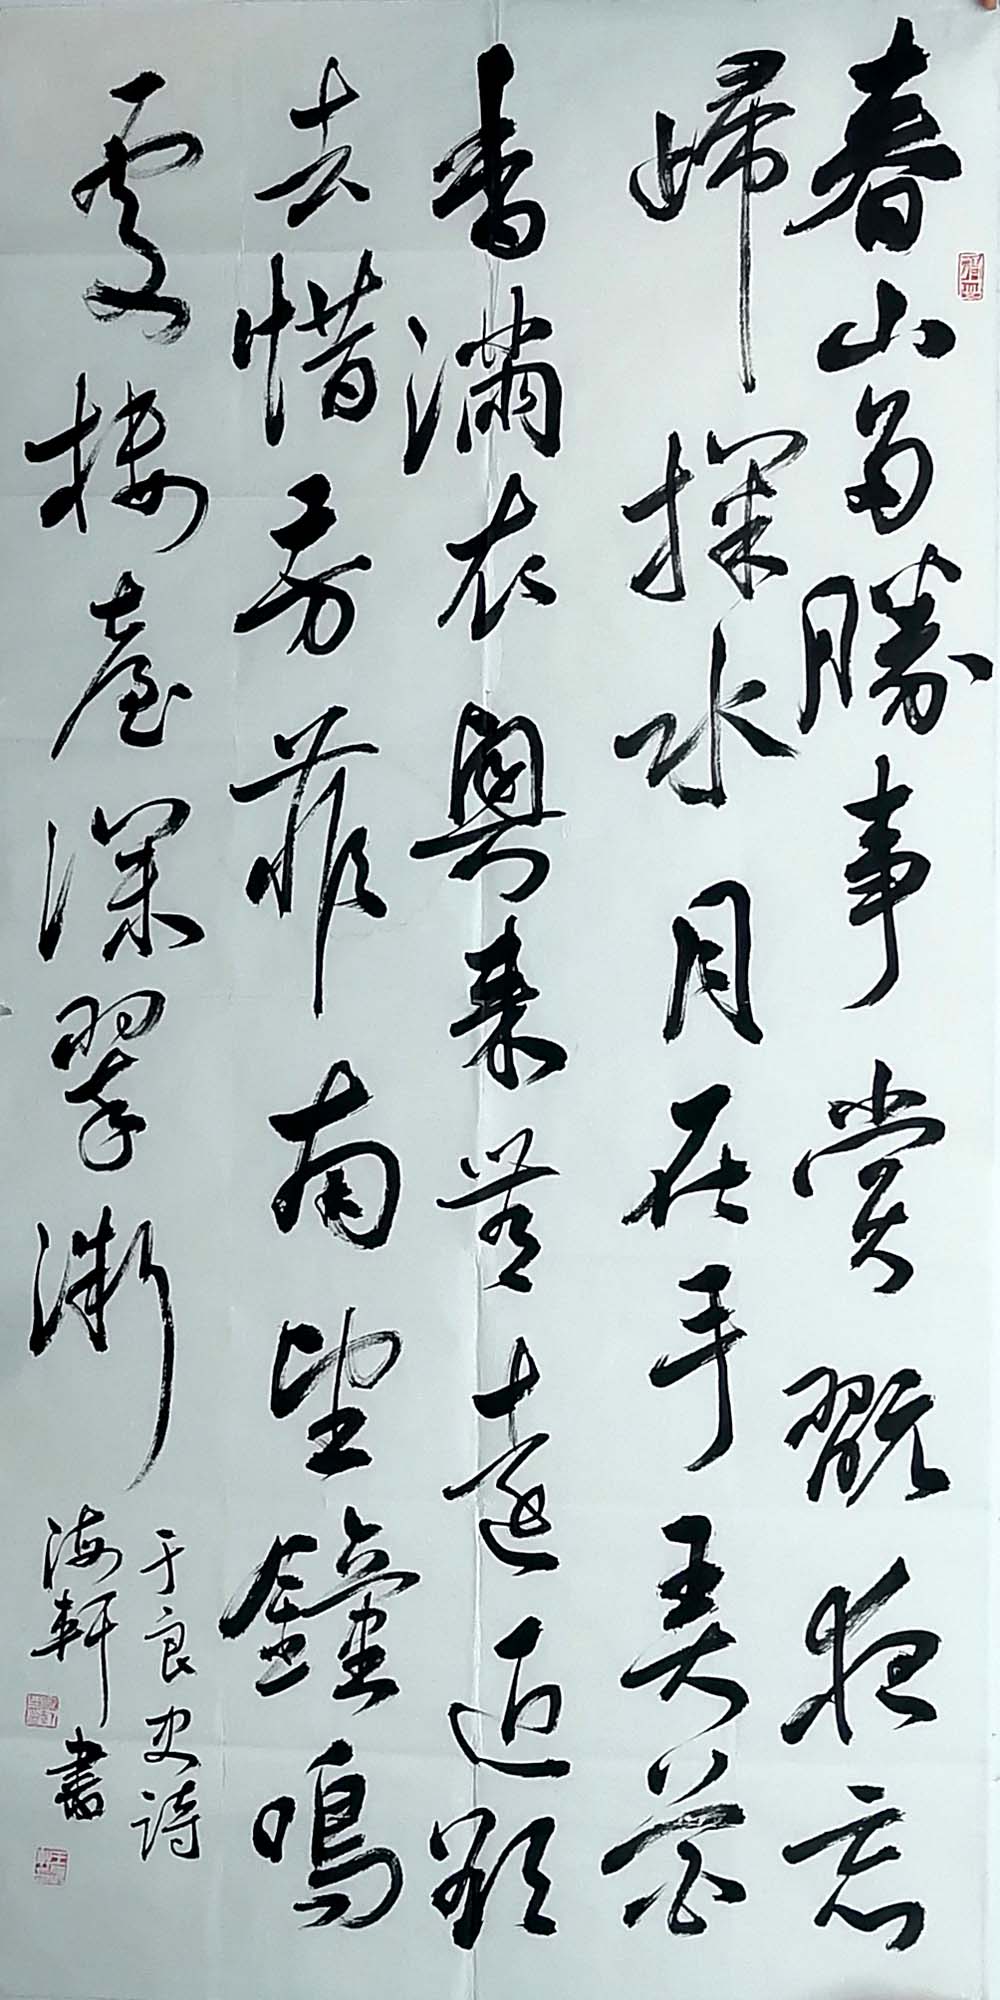 春山多勝事賞翫夜忘
歸探水月在手弄花
香滿衣興來無遠近欲
去惜芳菲南望鐘鳴
處樓臺深翠微
于良史詩
海軒書